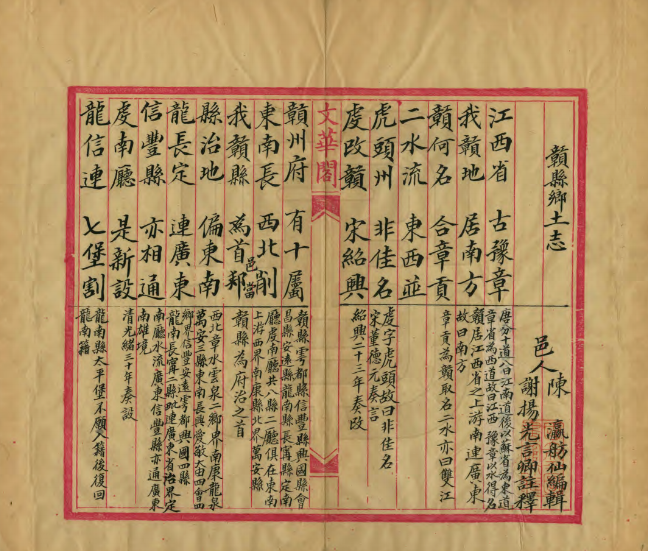 贛縣鄉土志
邑人
陳瀛舫仙編輯
謝揚光言卿註釋
江西省 古豫章
唐分十道八曰江南道後以蘇省為東道
章省為西道故曰江西 豫章以水得名
我贛地 居南方
贛居江西省之上游南連廣東
故曰南方
贛何名 合章貢
章貢為贛取名二水亦曰雙江
二水流 東西並
虎頭州 非佳名
虔字虎頭故曰非佳名
宋董德元奏言
虔改贛 宋紹興
紹興二十三年奏改
文華閣
贛州府 有十屬
贛縣雩都縣信豐縣興國縣會
昌縣安遠縣龍南縣長甯縣定南
東南長 西北削
廳虔南廳共八縣二廳俱在東南
上游西界南康縣北界萬安縣
我贛縣 為首
邑當
贛縣為府治之首
縣治地 偏東南
西北章水雲泉二鄉界南康龍泉
萬安三縣東南長興愛敬大由四會四
鄉界信豐安遠雩都興國四縣
龍長定 連廣東
龍南長甯二縣毗連廣東省治界定
南廳水流廣東信豐縣亦通廣東
信豐縣 亦相通
南雄境
虔南廳 是新設
清光緒三十年奏設
龍信連 七堡割
龍南縣太平堡不願入籍後復回
龍南籍